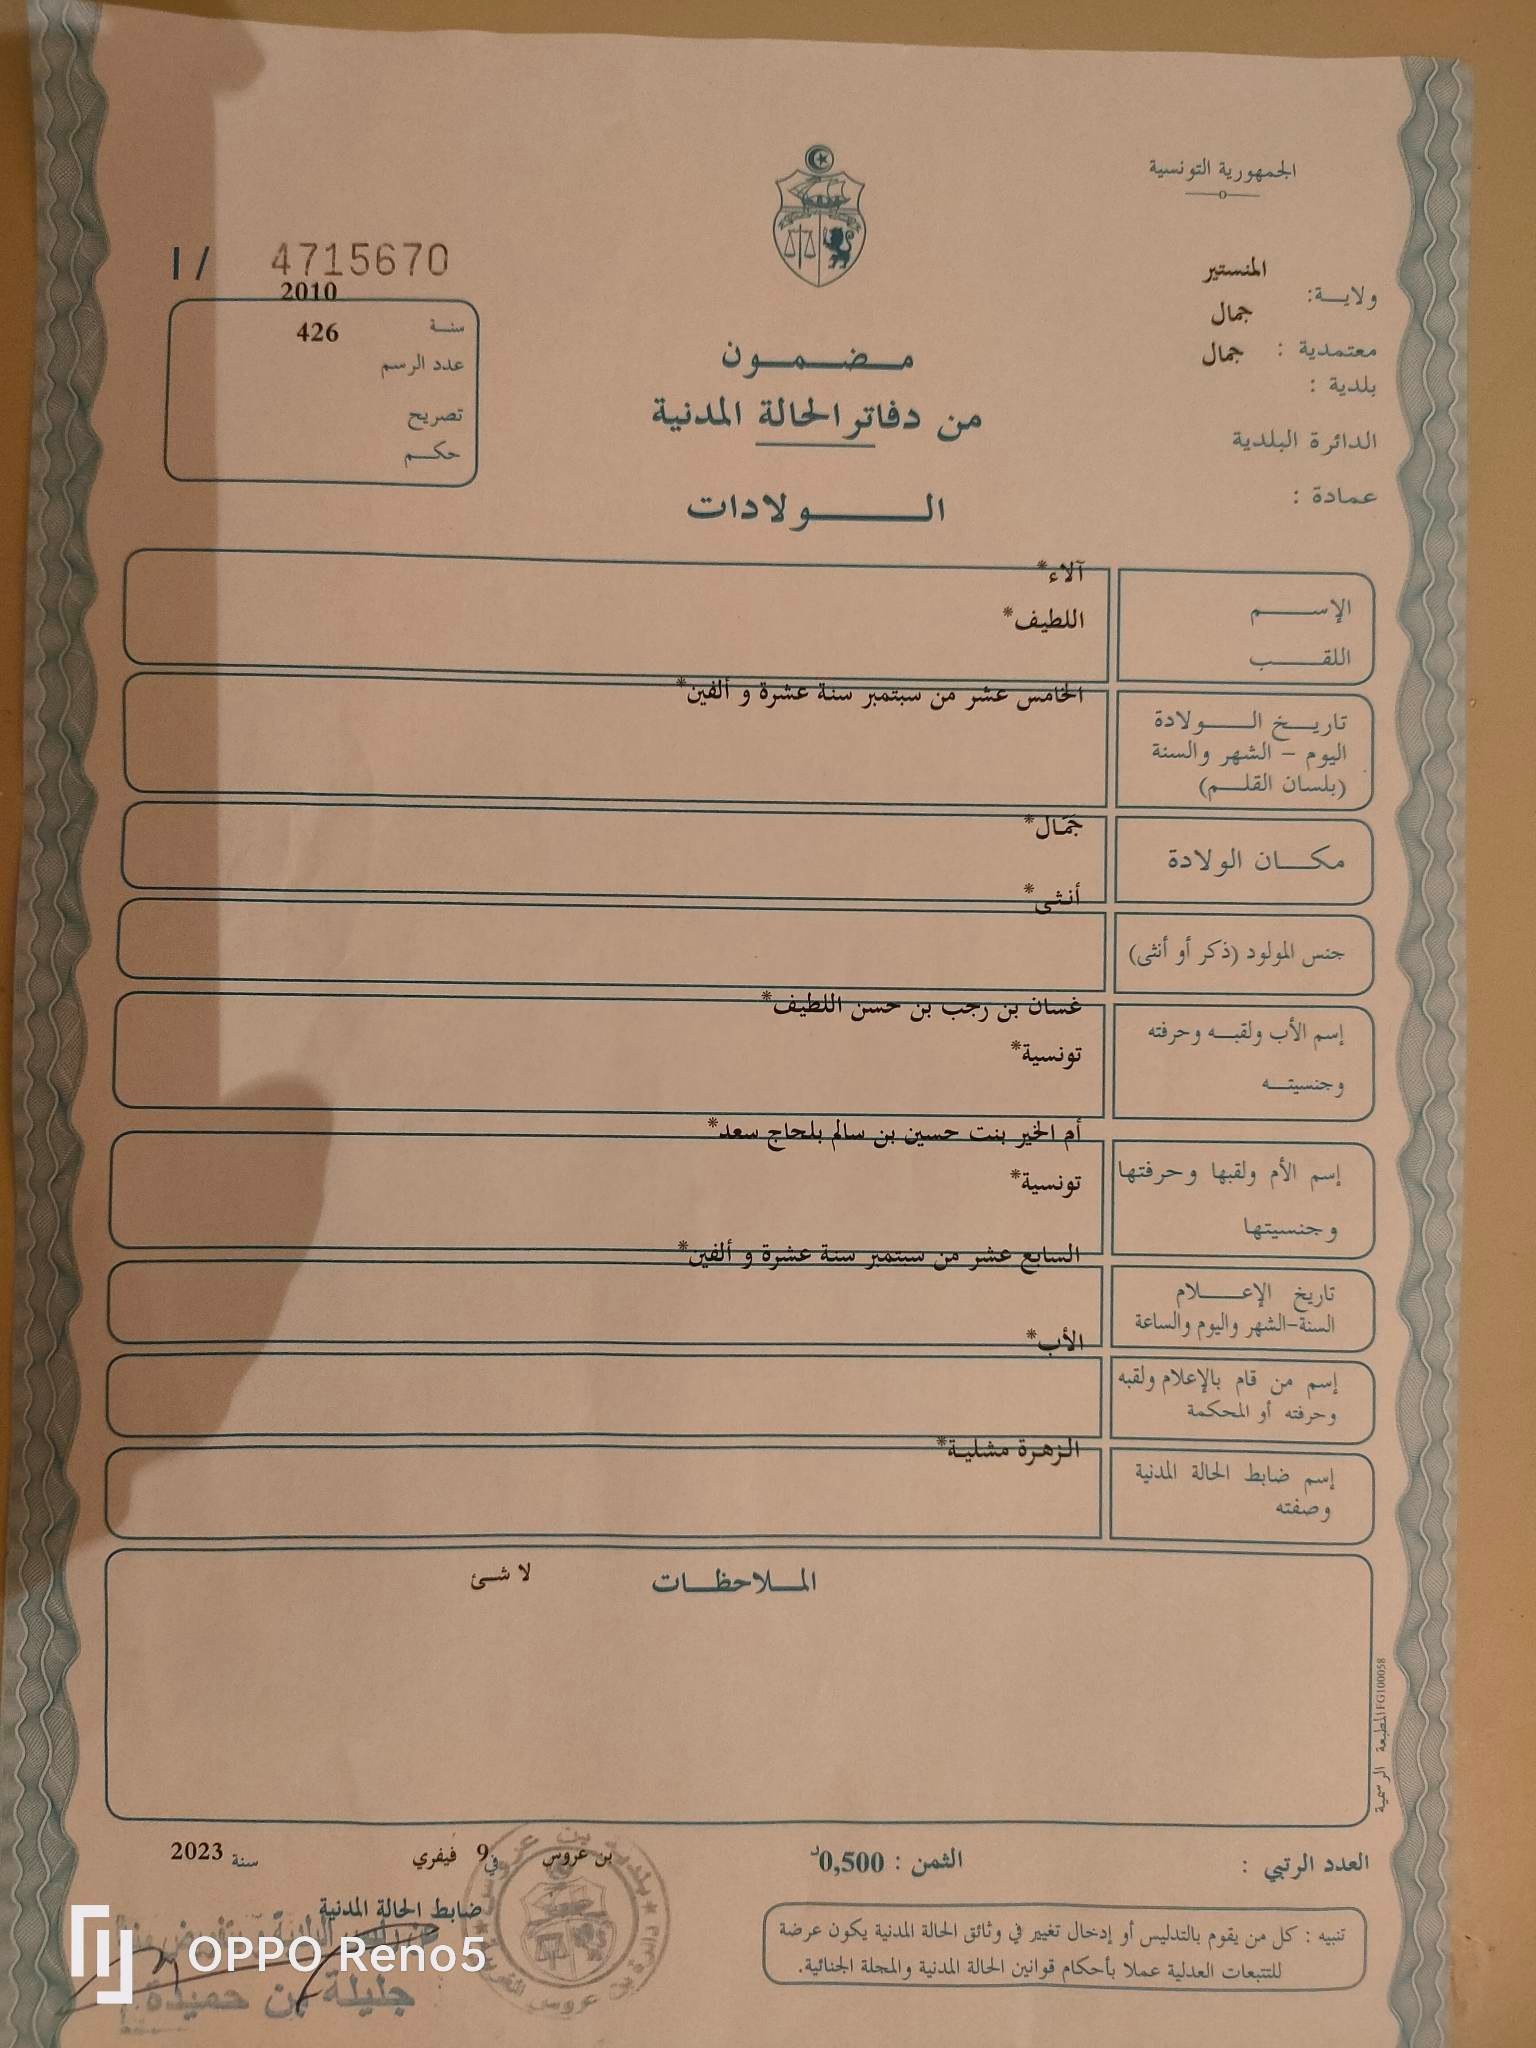 الجمهورية التونسية
ولايـــة: المنستير
معتمدية : جمال
بلدية : جمال
الدائرة البلدية
عمادة :
I / 4715670
سنــة 2010
عدد الرسم 426
تصريح
حكـــم
مـــضـــمـــون
من دفاتر الحالة المدنية
الـــــولادات
الإســـــم آلاء*
اللقـــــب اللطيف*
تاريـــخ الـــــولادة الخامس عشر من سبتمبر سنة عشرة و ألفين*
اليوم – الشهر والسنة
(بلسان القلــم)
مكـــان الولادة جمّال*
جنس المولود (ذكر أو أنثى) أنثى*
إسم الأب ولقبـــه وحرفته غسان بن رجب بن حسن اللطيف*
وجنسيتـــه تونسية*
إسم الأم ولقبها وحرفتها أم الخير بنت حسين بن سالم بلحاج سعد*
وجنسيتها تونسية*
تاريخ الإعـــــلام السابع عشر من سبتمبر سنة عشرة و ألفين*
السنة-الشهر واليوم والساعة
إسم من قام بالإعلام ولقبه الأب*
وحرفته أو المحكمة
إسم ضابط الحالة المدنية الزهرة مشلية*
وصفته
المـــلاحظـــات لا شئ
المطبعة الرسمية FG100058
العدد الرتبي :
الثمن : 0,500د
بن عروس في 9 فيفري سنة 2023
ضابط الحالة المدنية
جليلة بن حميدة
بلدية بن عروس
تنبيه : كل من يقوم بالتدليس أو إدخال تغيير في وثائق الحالة المدنية يكون عرضة
للتتبعات العدلية عملا بأحكام قوانين الحالة المدنية والمجلة الجنائية.
OPPO Reno5